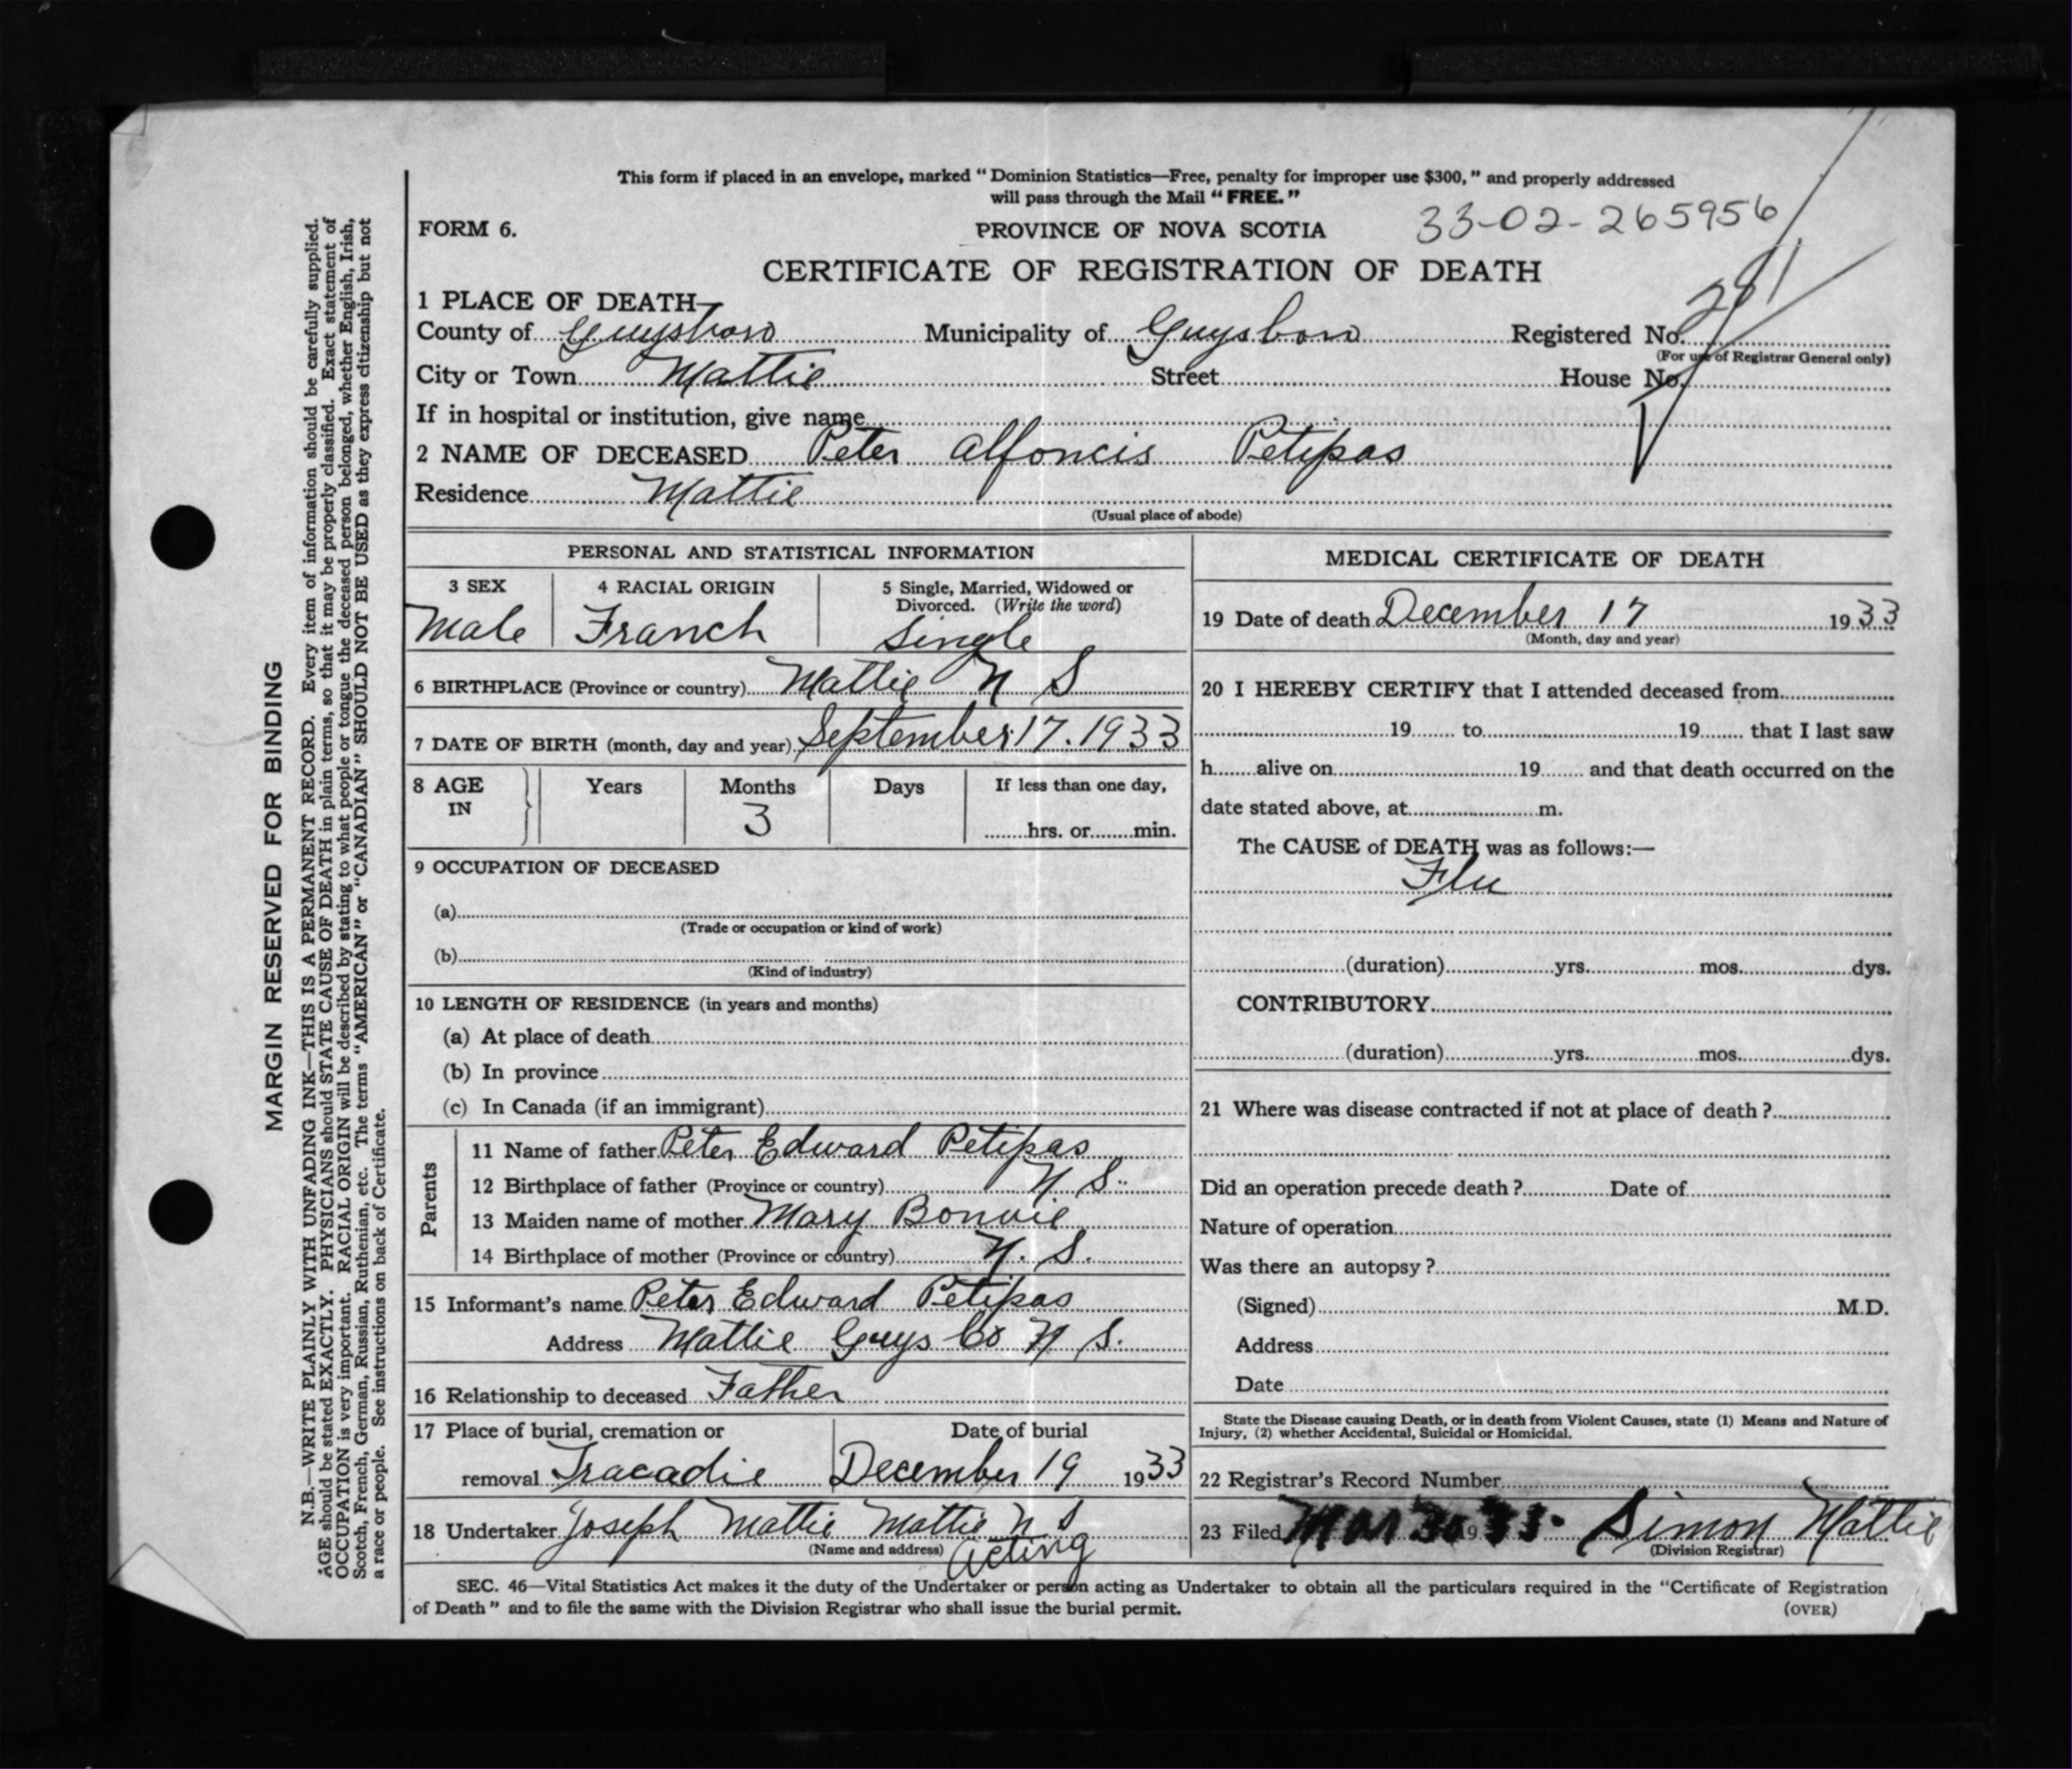 This form if placed in an envelope, marked "Dominion Statistics—Free, penalty for improper use $300," and properly addressed
will pass through the Mail "FREE."
FORM 6.
PROVINCE OF NOVA SCOTIA
33-02-265956
CERTIFICATE OF REGISTRATION OF DEATH
1 PLACE OF DEATH—
County of Guysboro Municipality of Guysboro Registered No.
(For use of Registrar General only)
City or Town Mattie Street House No.
If in hospital or institution, give name
2 NAME OF DECEASED Peter Alfoncis Petipas
Residence Mattie
(Usual place of abode)
PERSONAL AND STATISTICAL INFORMATION
3 SEX
Male
4 RACIAL ORIGIN
Franch
5 Single, Married, Widowed or
Divorced. (Write the word)
Single
6 BIRTHPLACE (Province or country) Mattie N S
7 DATE OF BIRTH (month, day and year) September 17. 1933
8 AGE IN
Years
Months
3
Days
If less than one day,
hrs. or min.
9 OCCUPATION OF DECEASED
(a)
(Trade or occupation or kind of work)
(b)
(Kind of industry)
10 LENGTH OF RESIDENCE (in years and months)
(a) At place of death
(b) In province
(c) In Canada (if an immigrant)
Parents
11 Name of father Peter Edward Petipas
12 Birthplace of father (Province or country) N. S.
13 Maiden name of mother Mary Bonvie
14 Birthplace of mother (Province or country) N. S.
15 Informant's name Peter Edward Petipas
Address Mattie Guys Co N S.
16 Relationship to deceased Father
17 Place of burial, cremation or
removal Tracadie
Date of burial
December 19 1933
18 Undertaker Joseph Mattie Mattie N S
(Name and address) Acting
MEDICAL CERTIFICATE OF DEATH
19 Date of death December 17 1933
(Month, day and year)
20 I HEREBY CERTIFY that I attended deceased from
19 to 19 that I last saw
h alive on 19 and that death occurred on the
date stated above, at m.
The CAUSE of DEATH was as follows:—
Flu
(duration) yrs. mos. dys.
CONTRIBUTORY
(duration) yrs. mos. dys.
21 Where was disease contracted if not at place of death?
Did an operation precede death? Date of
Nature of operation
Was there an autopsy?
(Signed) M.D.
Address
Date
State the Disease causing Death, or in death from Violent Causes, state (1) Means and Nature of
Injury, (2) whether Accidental, Suicidal or Homicidal.
22 Registrar's Record Number
23 Filed 19 Simon Mattie
(Division Registrar)
SEC. 46—Vital Statistics Act makes it the duty of the Undertaker or person acting as Undertaker to obtain all the particulars required in the "Certificate of Registration
of Death" and to file the same with the Division Registrar who shall issue the burial permit.
(OVER)
MARGIN RESERVED FOR BINDING
N.B.—WRITE PLAINLY WITH UNFADING INK—THIS IS A PERMANENT RECORD. Every item of information should be carefully supplied.
AGE should be stated EXACTLY. PHYSICIANS should STATE CAUSE OF DEATH in plain terms, so that it may be properly classified. Exact statement of
OCCUPATION is very important. RACIAL ORIGIN will be described by stating to what people or tongue the deceased person belonged, whether English, Irish,
Scotch, French, German, Russian, Ruthenian, etc. The terms "AMERICAN" or "CANADIAN" SHOULD NOT BE USED as they express citizenship but not
a race or people. See instructions on back of Certificate.